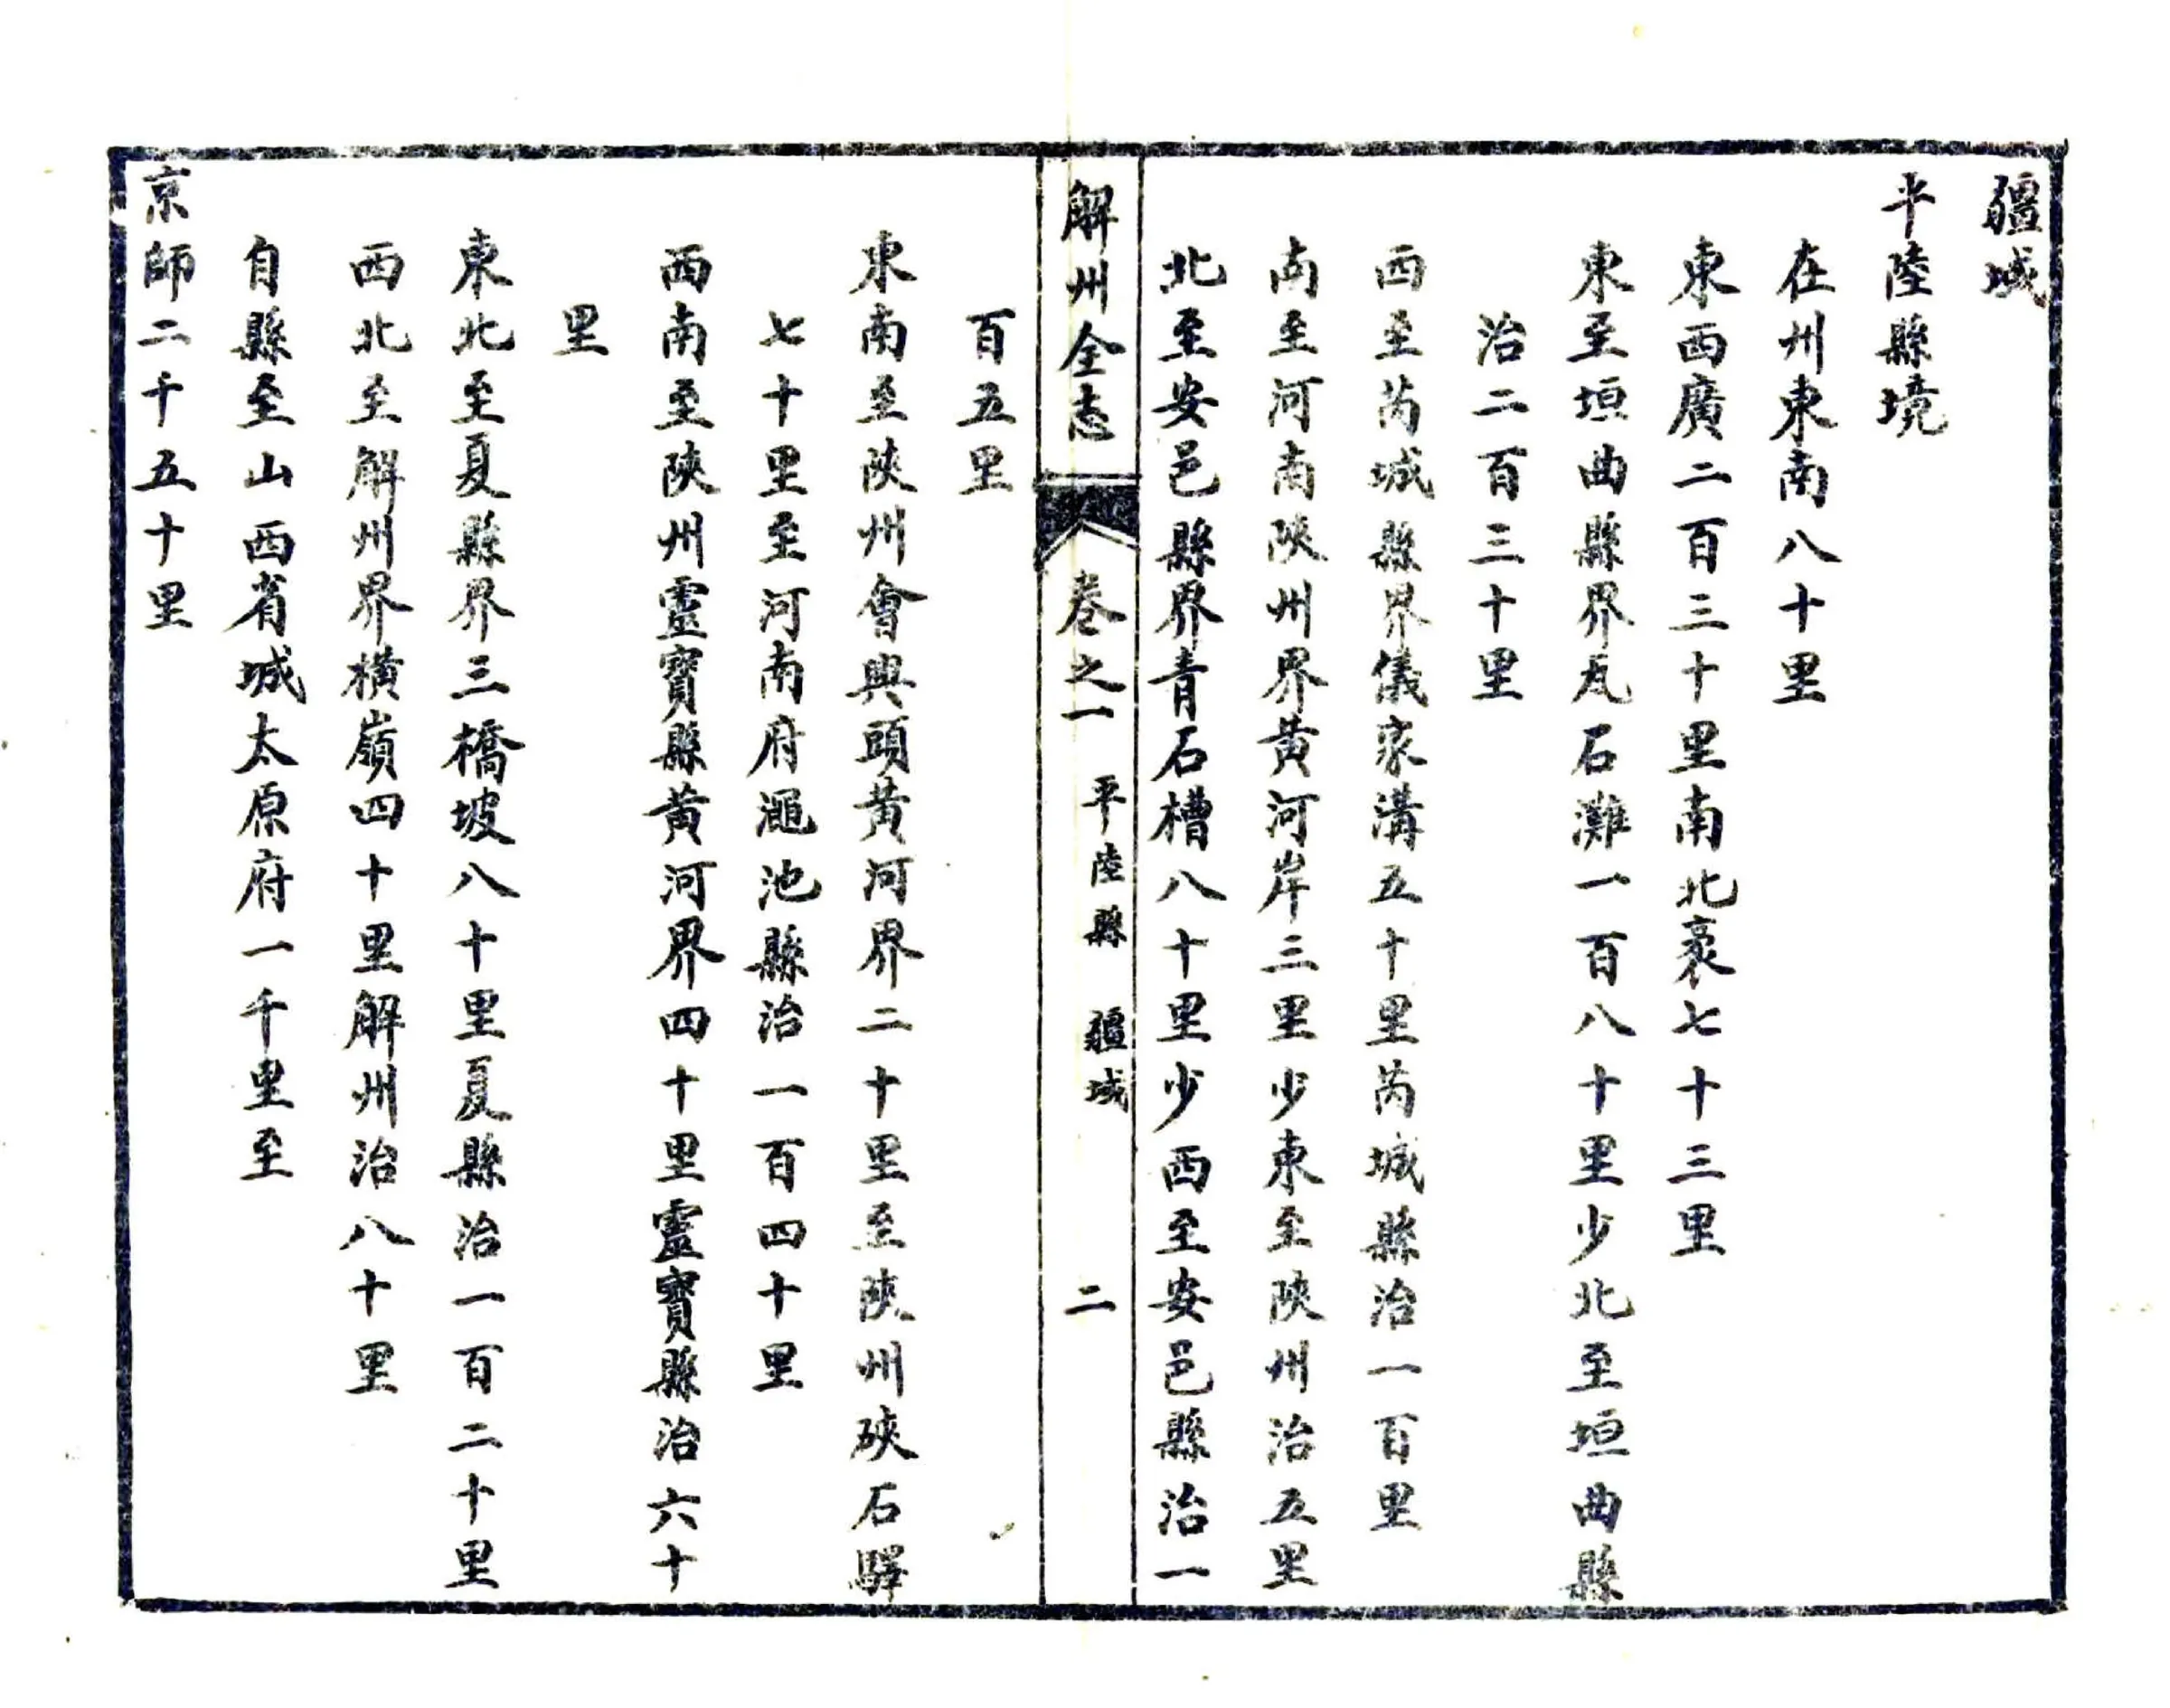 疆域
平陸縣境
在州東南八十里
東西廣二百三十里南北袤七十三里
東至垣曲縣界瓦石灘一百八十里少北至垣曲縣
治二百三十里
西至芮城縣界儀家溝五十里芮城縣治一百里
南至河南陝州界黃河岸三里少東至陝州治五里
北至安邑縣界青石槽八十里少西至安邑縣治一
解州全志 卷之一 平陸縣 疆域 二
百五里
東南至陝州會興頭黃河界二十里至陝州硤石驛
七十里至河南府澠池縣治一百四十里
西南至陝州靈寶縣黃河界四十里靈寶縣治六十
里
東北至夏縣界三橋坡八十里夏縣治一百二十里
西北至解州界橫嶺四十里解州治八十里
自縣至山西省城太原府一千里至
京師二千五十里